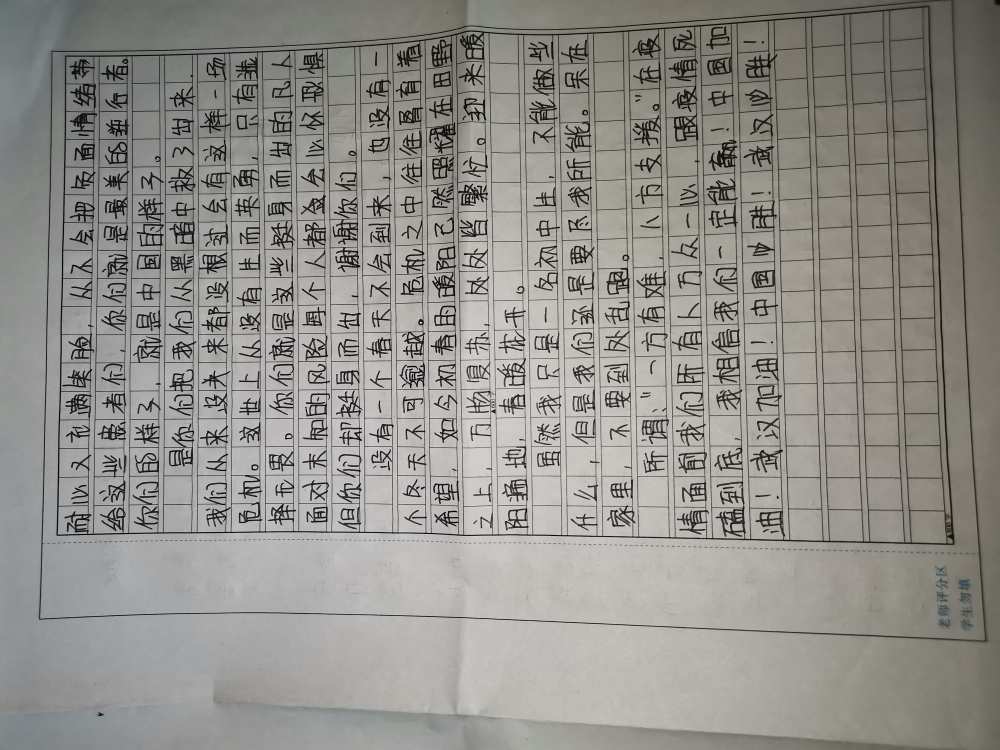 耐心又充满柴脸，从不会把负面情绪带
给这些患者们，你们就是最美的逆行者。
你们的样子，就是中国的样子。
是你们把我们从黑暗中救了出来.
我们从来没来都没根过会有这样一场
危机。这世上从没有生而英勇，只有选
择无畏。你们就是这些挺身而出的凡人
面对未知的风险每个人都会会心怀恐惧
但你们却挺身而出，谢谢你们。
没有一个春天不会到来，也没有一
个冬天不可逾越。危机之中往往孕育着
希望，如今初春的暖阳已然照耀在田野
之上，万物复苏，处处皆繁忙。迎来暖
阳遍地，春暖花开。
虽然我只是一名初中生，不能做些
什么，但是我们还是要尽我所能。呆在
家里，不要到处乱跑。
所谓："一方有难，八方支援。"在疫
情面前我们所有人万众一心，跟疫情死
磕到底，我相信我们一定能赢！中国加
油！武汉加油！中国必胜！武汉必胜！
老师评分区
学生勿填